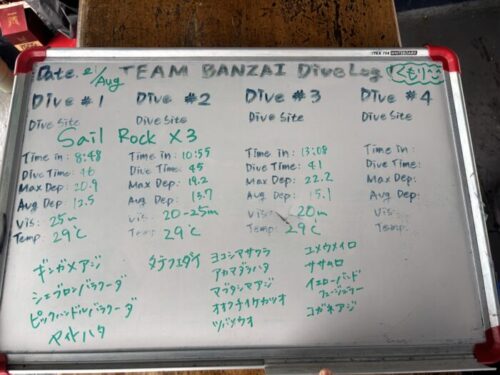 Date. 2/Aug TEAM BANZAI DiveLog くもり〜
Dive #1 Dive #2 Dive #3 Dive #4
Dive Site Dive Site Dive Site Dive Site
Sail Rock X3
Time in: 8:48 Time in: 10:55 Time in: 13:08 Time in:
Dive Time: 46 Dive Time: 45 Dive Time: 41 Dive Time:
Max Dep: 20.9 Max Dep: 19.2 Max Dep: 22.2 Max Dep:
Avg Dep: 12.5 Avg Dep: 13.7 Avg Dep: 15.1 Avg Dep:
Vis: 25m Vis: 20-25m Vis: 20m Vis:
Temp: 29℃ Temp: 29℃ Temp: 29℃ Temp:
ギンガメアジ タテフエダイ ヨコシマサワラ ユメウメイロ
シェブロンバラクーダ アカマダラハタ ササムロ
ピックハンドルバラクーダ マブタシマアジ イエローバンド
フュージュラー
オオクチイケカツオ コガネアジ
マイトハタ ツバメウオ